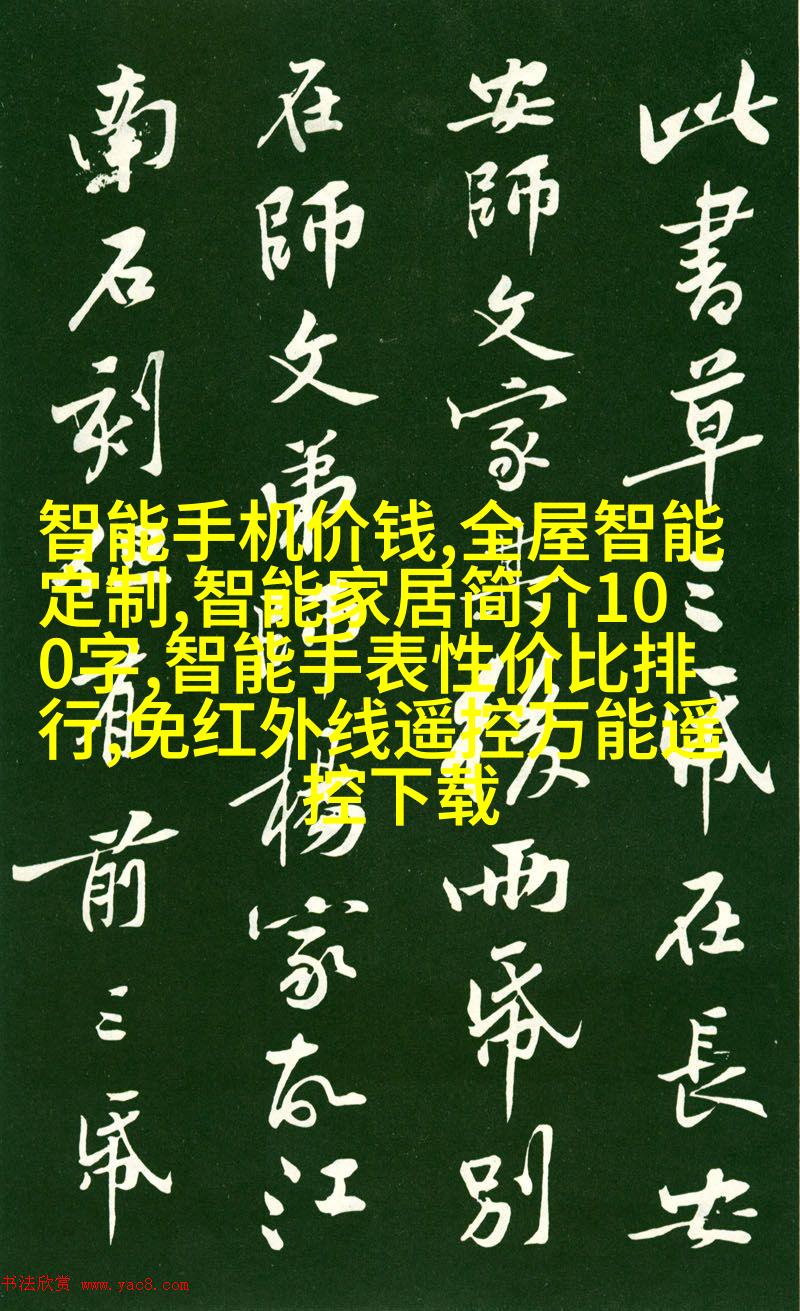 此書草三帋在長安
安師文家其後兩帋別
在師文弟師楊家故江
南石刻有前三帋
智能手机价钱,全屋智能
定制,智能家居简介10
0字,智能手表性价比排
行,免红外线遥控万能遥
控下载
书法欣赏 www.yac8.com